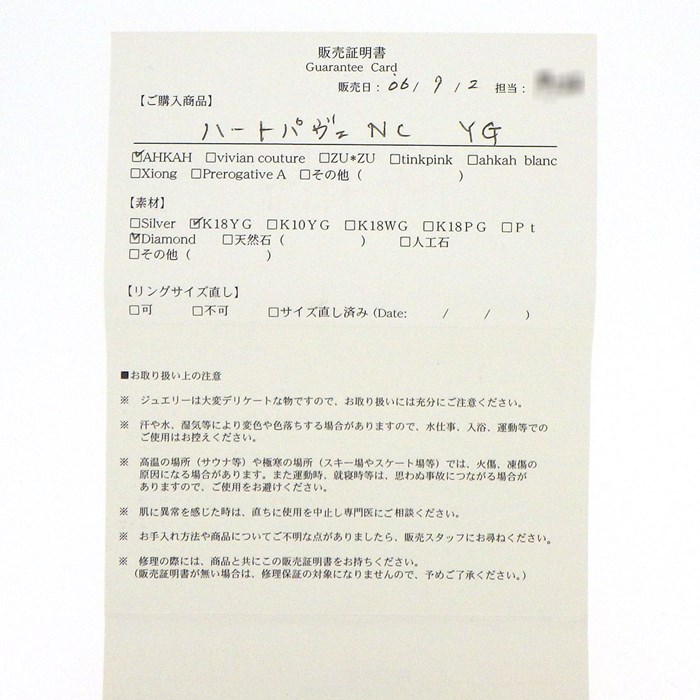 販売証明書
Guarantee Card
販売日: 06/9/2 担当:
【ご購入商品】
ハートパヴェ NC YG
☑AHKAH □vivian couture □ZU*ZU □tinkpink □ahkah blanc
□Xiong □Prerogative A □その他 ( )
【素材】
□Silver ☑K18YG □K10YG □K18WG □K18PG □Pt
☑Diamond □天然石 ( ) □人工石
□その他 ( )
【リングサイズ直し】
□可 □不可 □サイズ直し済み (Date: / / )
■お取り扱い上の注意
※ ジュエリーは大変デリケートな物ですので、お取り扱いには充分にご注意ください。
※ 汗や水、湿気等により変色や色落ちする場合がありますので、水仕事、入浴、運動等での
ご使用はお控えください。
※ 高温の場所（サウナ等）や極寒の場所（スキー場やスケート場等）では、火傷、凍傷の
原因になる場合があります。また運動時、就寝時等は、思わぬ事故につながる場合が
ありますので、ご使用をお避けください。
※ 肌に異常を感じた時は、直ちに使用を中止し専門医にご相談ください。
※ お手入れ方法や商品についてご不明な点がありましたら、販売スタッフにお尋ねください。
※ 修理の際には、商品と共にこの販売証明書をお持ちください。
（販売証明書が無い場合は、修理保証の対象になりませんので、予めご了承ください。）